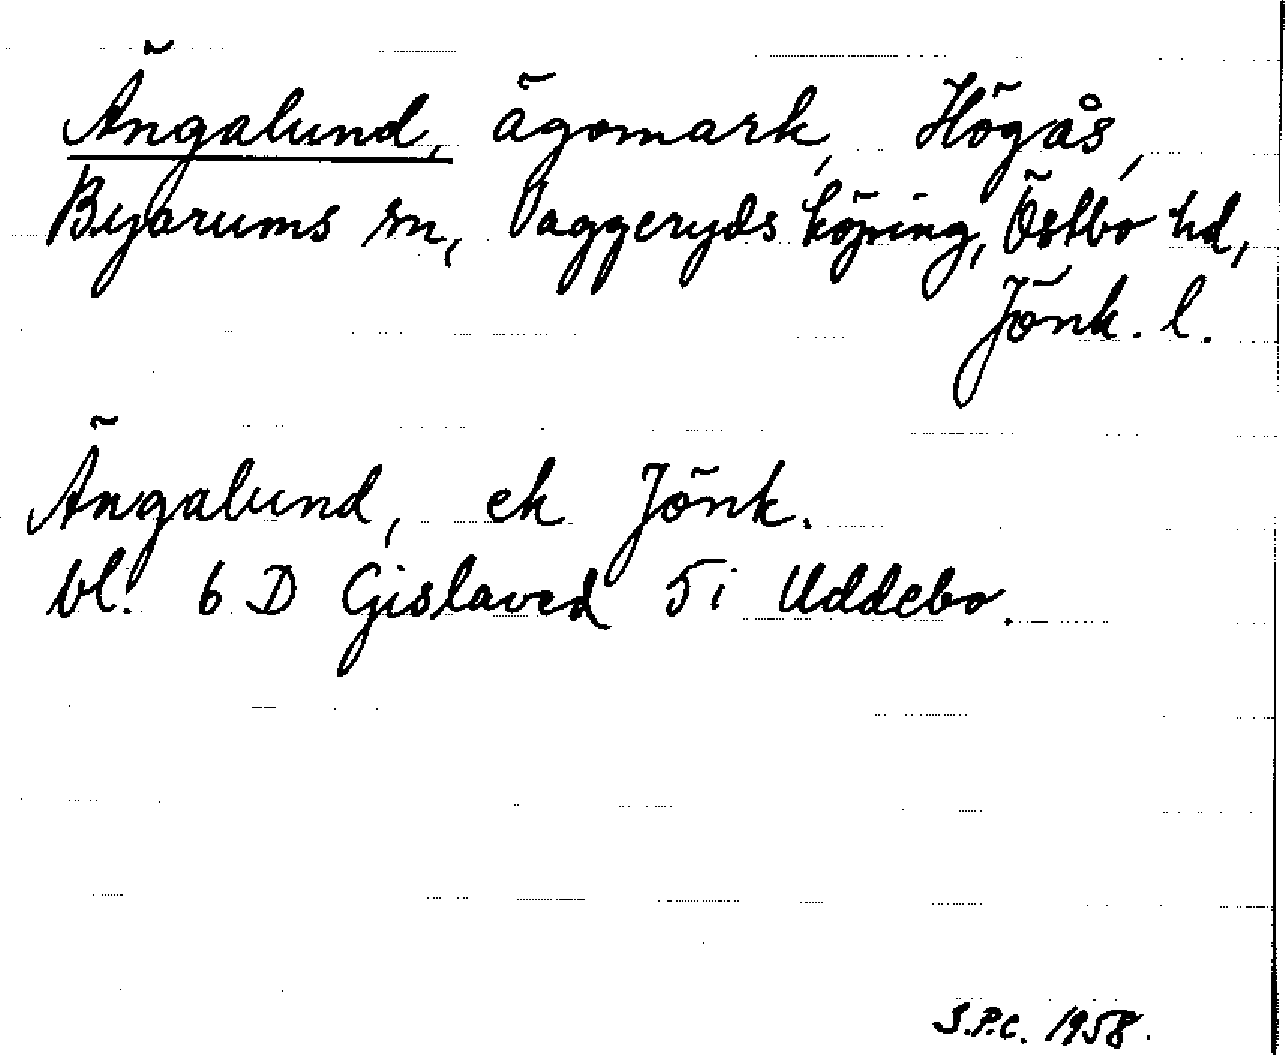 Ängalund, ägomark, Högås,
Byarums sn, Vaggeryds köping, Östbo hd,
Jönk. l.
Ängalund, ek Jönk.
bl. 6 D Gislaved 5 i Uddebo.
S.P.C. 1958.